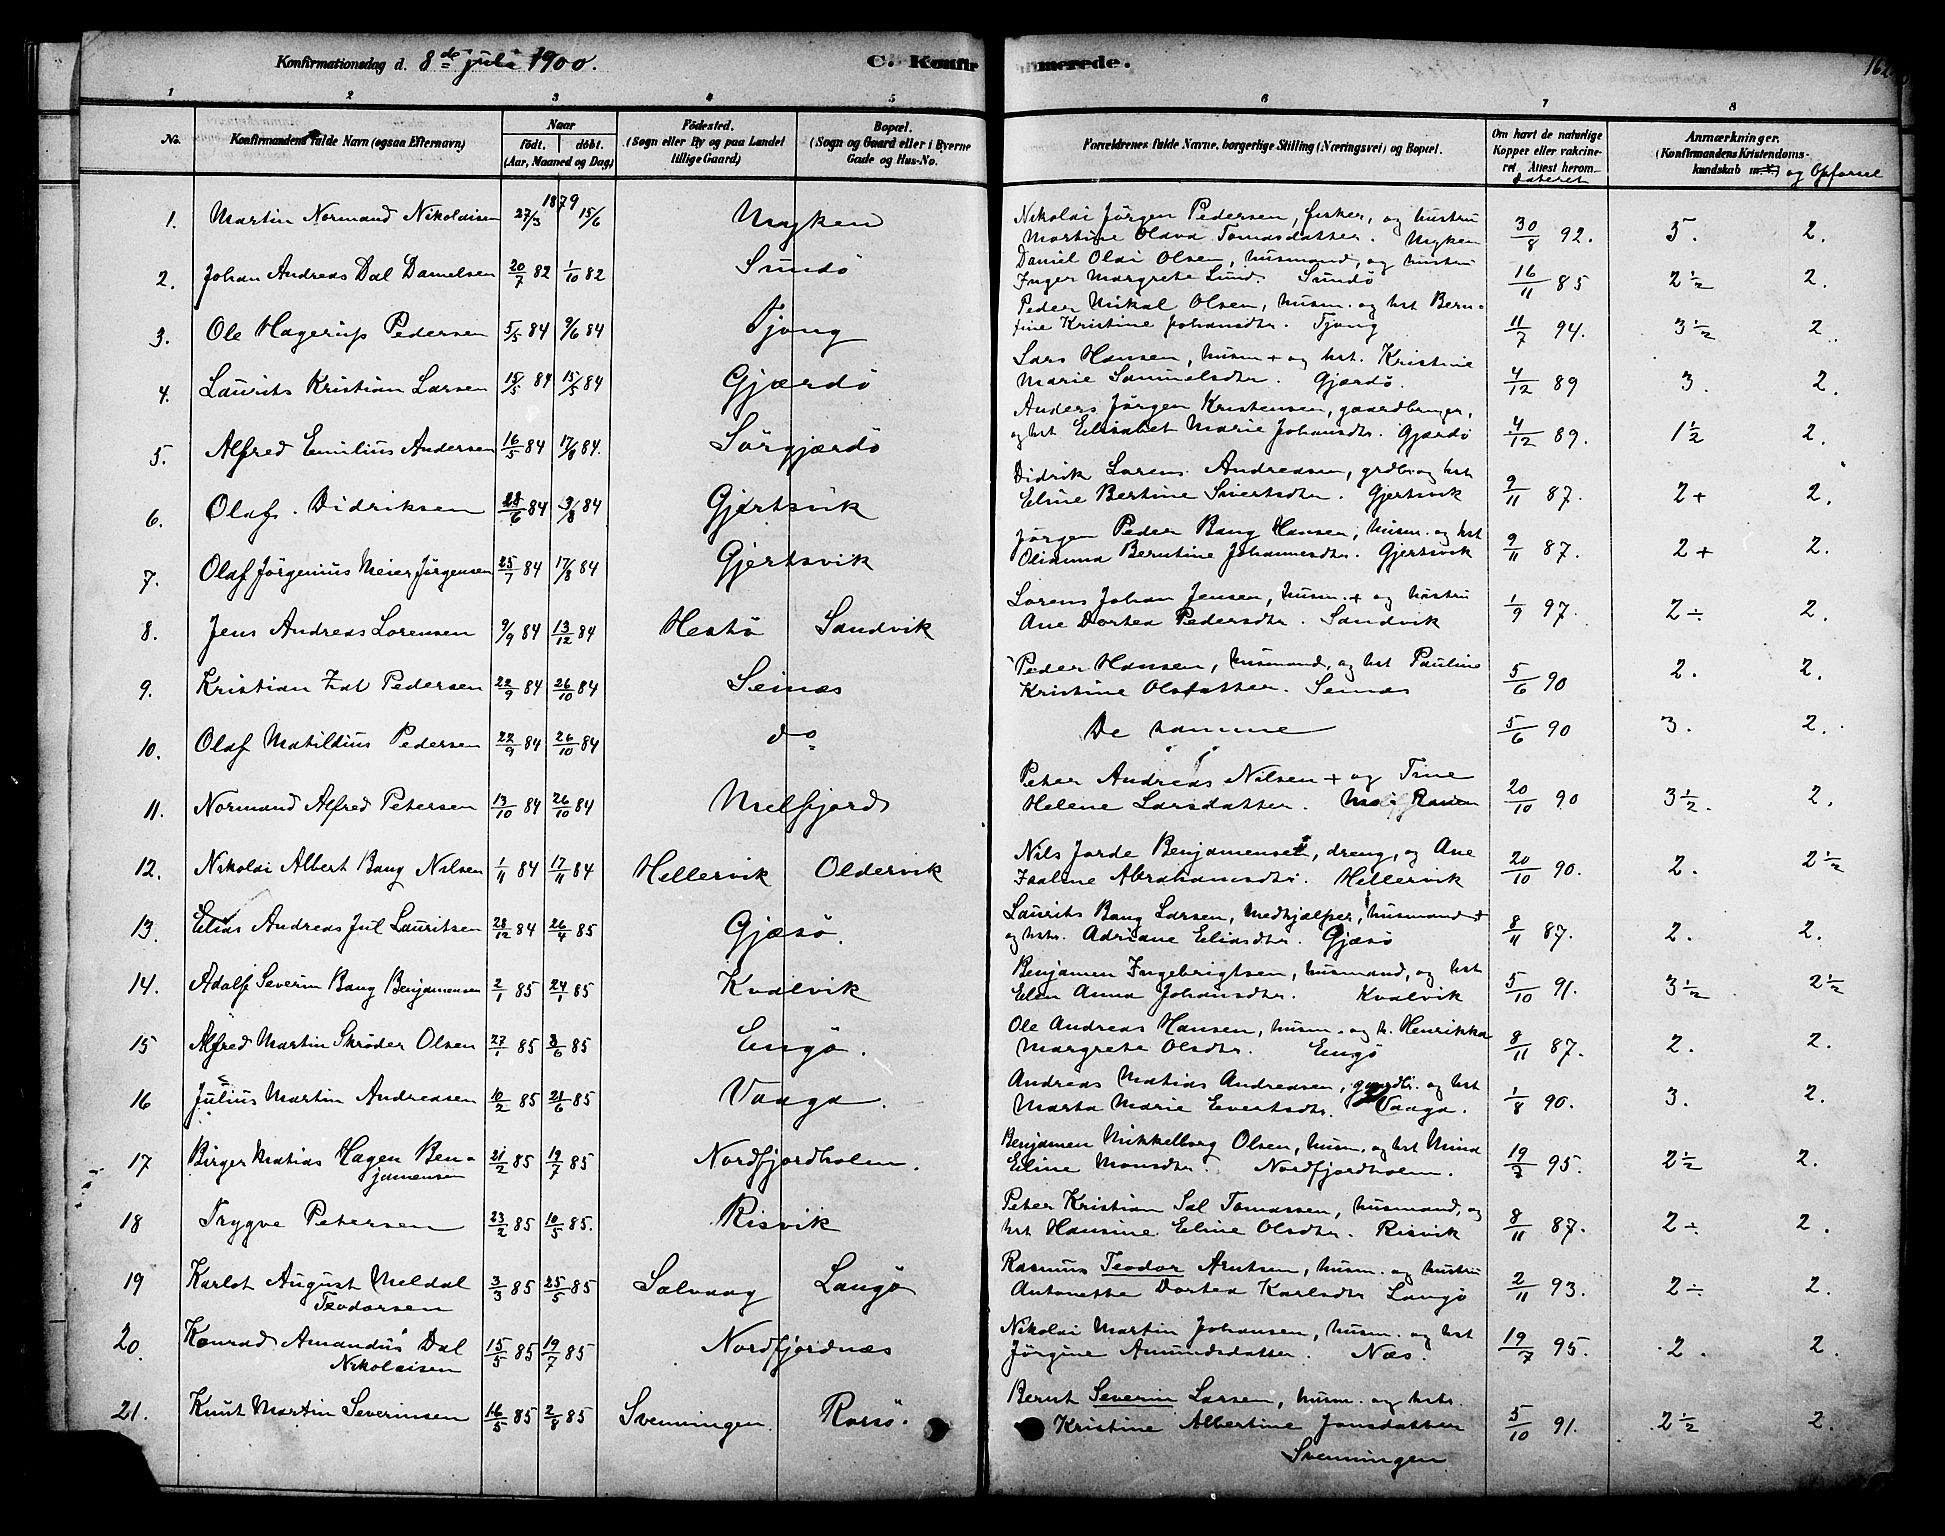 Konfirmationsdag d. 8de juli 1900.
C. Konfirmerede.
1 2 3 4 5 6 7 8
No.
Konfirmandens fulde Navn (ogsaa Efternavn)
Naar
født. døbt.
(Aar, Maaned og Dag)
Fødested.
(Sogn eller By og paa Landet
tillige Gaard)
Bopæl.
(Sogn og Gaard eller i Byerne
Gade og Hus-No.
Forældrenes fulde Navne, borgerlige Stilling (Næringsvei) og Bopæl.
Om havt de naturlige
Kopper eller vakcine-
ret Attest herom
dateret
Anmærkninger.
(Konfirmandens Kristendoms-
kundskab m. v.) og Opførsel
1. Martin Normand Nikolaisen 27/3 1879 15/6 Myken
Nikolai Jörgen Pedersen, fisker, og hustru
Martine Olava Tomasdatter. Myken 30/8 92. 5. 2.
2. Johan Andreas Dal Danielsen 20/7 82 1/10 82 Sundö
Daniel Oldi Olsen, husmand, og hustru
Inger Margrete Lund. Sundö 16/11 85 2½ 2.
3. Ole Hagerup Pedersen 5/5 84 9/6 84 Tjong
Peder Mikal Olsen, husm. og hst Bern-
tine Kristine Johansdtr. Tjong 11/7 94. 3½ 2.
4. Laurits Kristian Larsen 15/5 84 15/5 84 Gjærdö
Lars Hansen, husm + og hst. Kristine
Marie Samuelsdtr. Gjærdö. 4/12 89 3. 2.
5. Alfred Emilius Andersen 16/5 84 17/8 84. Sörgjærdö
Anders Jörgen Kristensen, gaardbruger,
og hst Elisabet Marie Johansdtr. Gjærdö 4/12 89. 1½ 2.
6. Olaf Didriksen 28/6 84 3/8 84 Gjertsvik
Didrik Lorens Andreasen, grdbr. og hst
Eline Bertine Sivertsdtr. Gjertsvik 9/11 87. 2+ 2.
7. Olaf Jörgenius Meier Jörgensen 25/7 84 17/8 84 Gjertsvik
Jörgen Peder Bang Hansen, husm. og hst
Olianna Berntine Johannesdtr. Gjertsvik 9/11 87. 2+ 2.
8. Jens Andreas Lorensen 9/9 84 13/12 84 Hestö Sandvik
Lorens Johan Jensen, husm. + og hustru
Ane Dortea Pedersdtr. Sandvik 1/9 97. 2÷ 2.
9. Kristian Zal Pedersen 22/9 84 26/10 84 Seines
Peder Hansen, husmand, og hst Pauline
Kristine Olsdatter. Seines 5/6 90 2. 2.
10. Olaf Matildius Pedersen 22/9 84 26/10 84 do
De samme 5/6 90 3. 2.
11. Normand Alfred Petersen 13/10 84 26/10 84 Melfjord
Peter Andreas Nilsen + og Trine
Helene Larsdatter. 20/10 90 3½. 2.
12. Nikolai Albert Bang Nilsen 1/11 84 17/11 84 Hellervik Oldervik
Nils Jorde Benjamensen, dreng, og Ane
Abrahamsdtr. Hellervik 20/10 90. 2. 2½
13. Elias Andreas Jul Lauritsen 28/12 84 26/4 85 Gjæsö.
Laurits Bang Larsen, Medhjælper, husmand +
og hstr. Adriane Eliasdtr. Gjæsö 8/11 87. 2. 2.
14. Adolf Severin Bang Benjamensen 2/1 85 24/1 85 Kvalvik
Benjamen Ingebrigtsen, husmand, og hst
Elen Anna Johansdtr. Kvalvik 5/10 91. 3½ 2½
15 Alfred Martin Skröder Olsen 27/1 85 3/6 85 Engö.
Ole Andreas Hansen, husm. og h. Henrikka
Margrete Olsdtr. Engö 8/11 87. 2. 2.
16 Julius Martin Andreasen 10/2 85 21/6 85 Vaaga.
Andreas Matias Andreasen, gaardbr. og hst
Marta Marie Evertsdtr. Vaaga. 1/8 90. 3. 2.
17 Birger Matias Hagen Ben-
jamensen 21/2 85 19/7 85 Nordfjordholm.
Benjamen Mikkelborg Olsen, husm. og hst Mina
Eline Monsdtr. Nordfjordholm. 19/7 95. 2½ 2.
18 Trygve Petersen 23/2 85 10/5 85. Risvik
Peter Kristian Sal Tomassen, husmand, og
hst Hansine Eline Olsdtr. Risvik 8/11 87. 2÷ 2.
19 Karlot August Meldal
Teodorsen 3/3 85 25/5 85 Selvaag Langö
Rasmus Teodor Arntsen, husm. og hustru
Antonette Dortea Karlsdtr Langö 2/11 93. 2÷ 2.
20. Konrad Amandus Dal
Nikolaisen 15/5 85 19/7 85 Nordfjordnæs
Nikolai Martin Johansen, husm. og hst
Jörgine Amundsdatter. Næs. 19/7 95. 2. 2.
21. Knut Martin Severinsen 16/5 85 2/8 85 Svenningen Rossö.
Bernt Severin Larsen, husm. og hstr.
Kristine Albertine Jonsdatter
Svenningen 5/10 91. 2½ 2.